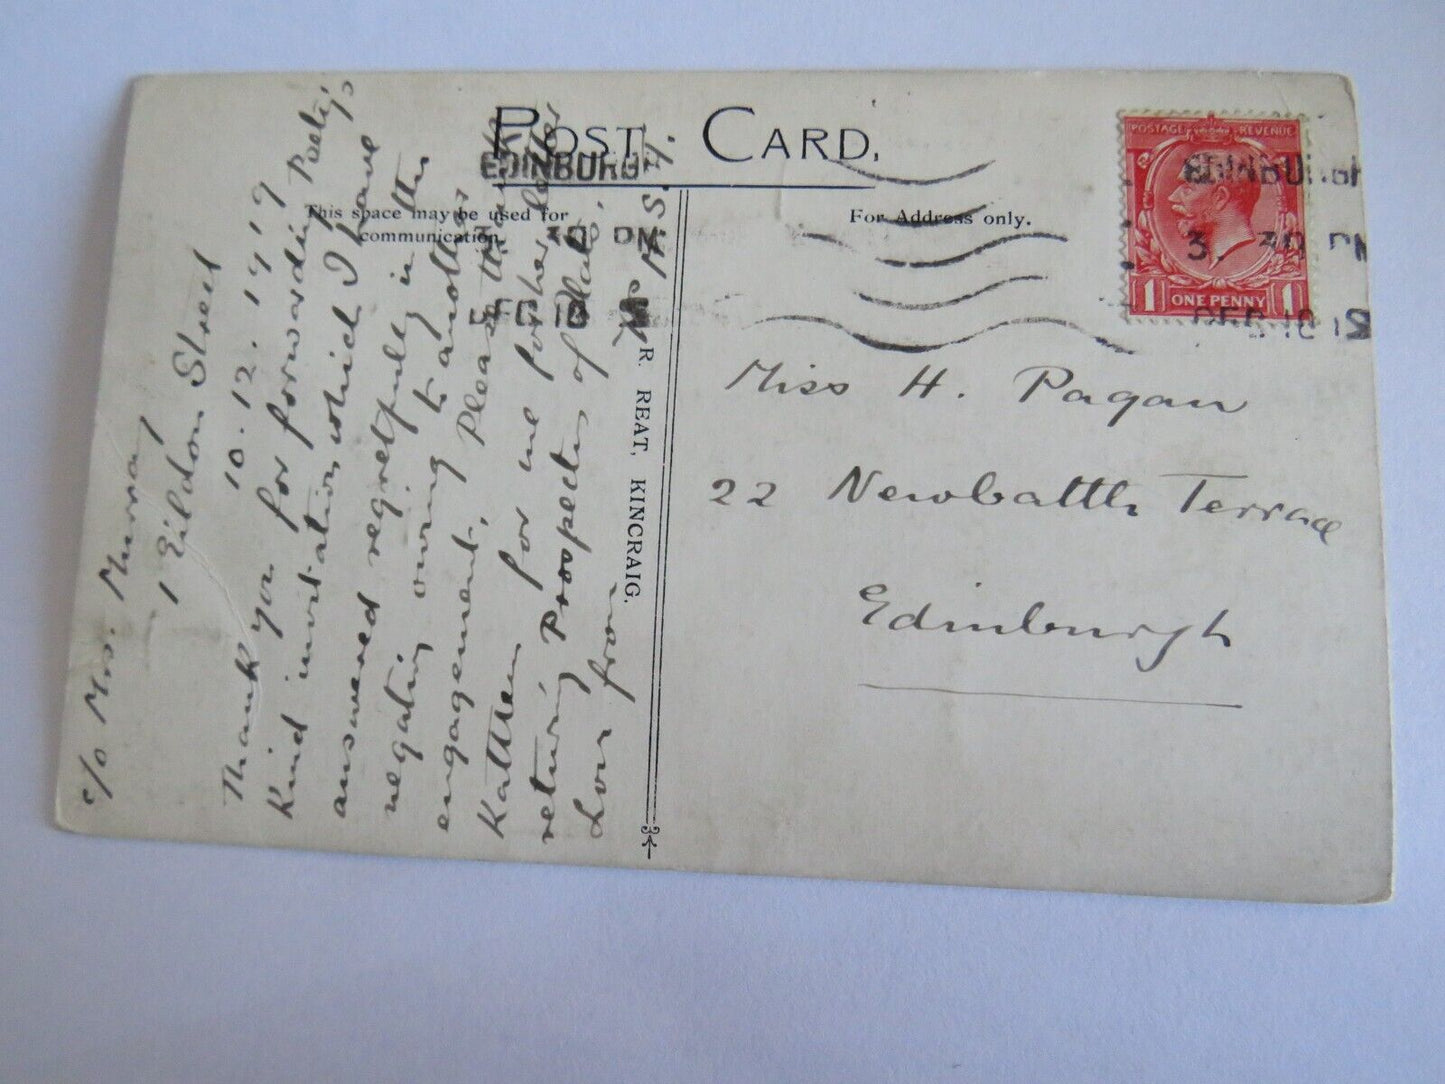 POST CARD.
This space may be used for
communication.
For Address only.
EDINBURGH
3. 30 PM
DEC 10 19
EDINBURGH
3. 30 PM
DEC 10 19
POSTAGE REVENUE
1 ONE PENNY 1
R. REAT, KINCRAIG.
c/o Mrs. Murray
1 Eildon Street
10.12.1919
Thank you for forwarding Party's
kind invitation which I have
answered regretfully in the
negative owing to another
engagement. Please thank
for me for her letter
returning Prospectus of
Love from
Miss H. Pagan
22 Newbattle Terrace
Edinburgh